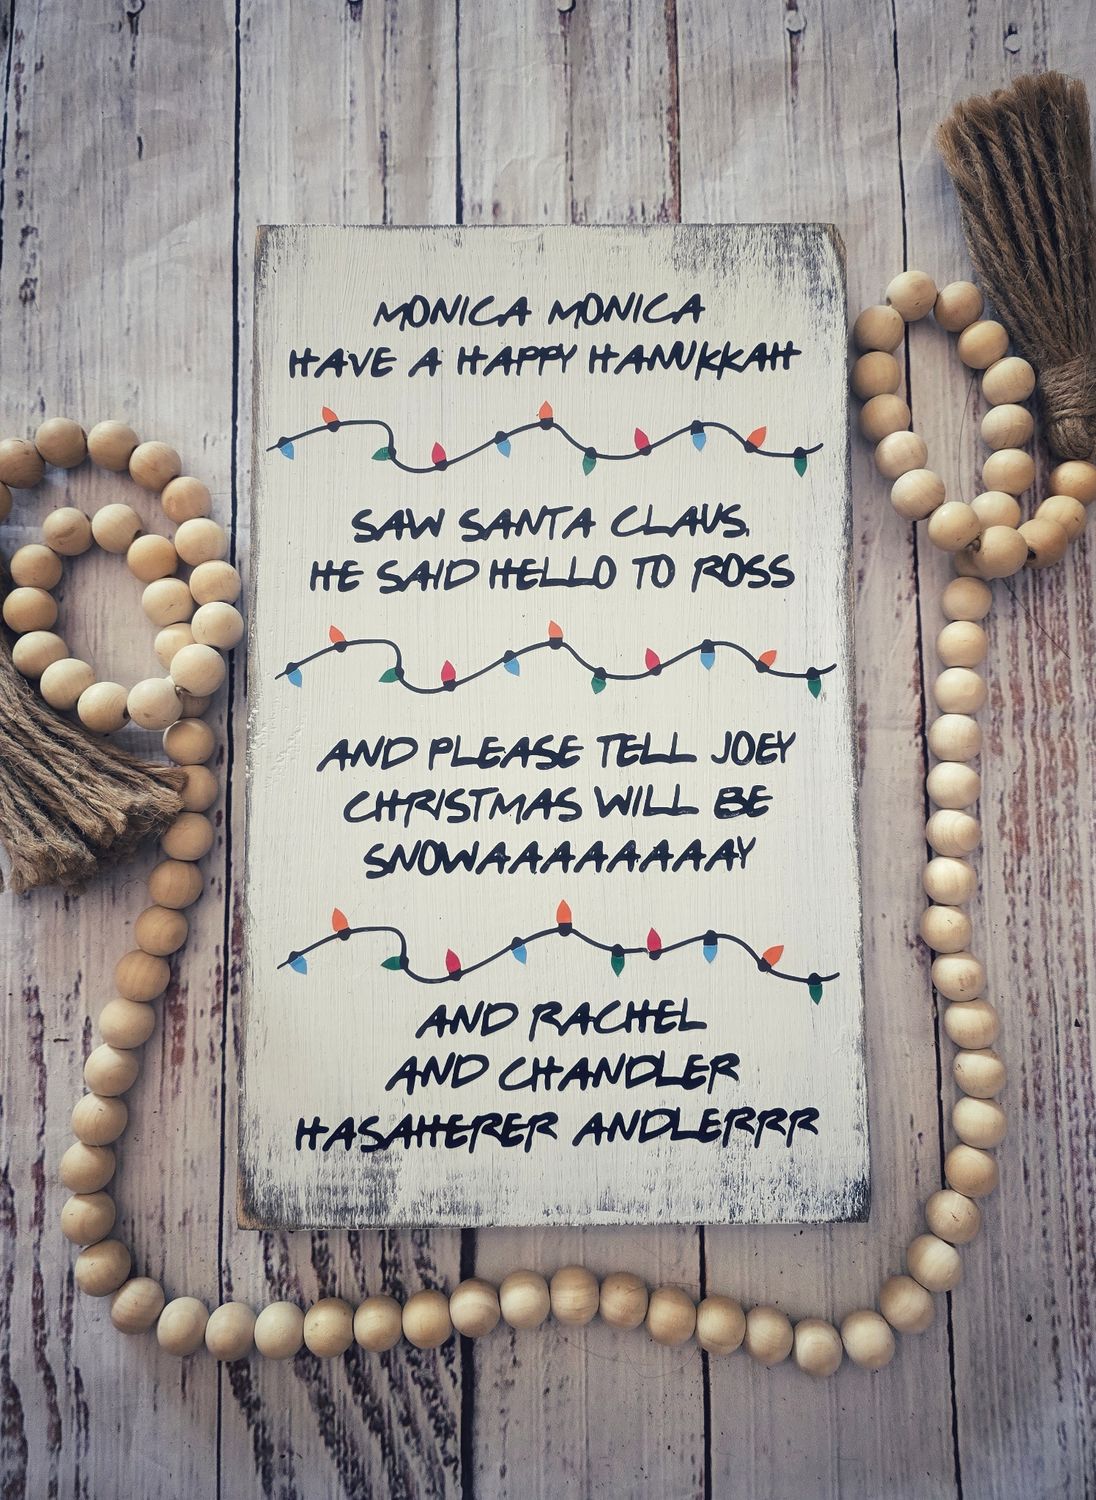 MONICA MONICA
HAVE A HAPPY HANUKKAH
SAW SANTA CLAUS,
HE SAID HELLO TO ROSS
AND PLEASE TELL JOEY
CHRISTMAS WILL BE
SNOWAAAAAAAAAY
AND RACHEL
AND CHANDLER
HASAHERER ANDLERRR